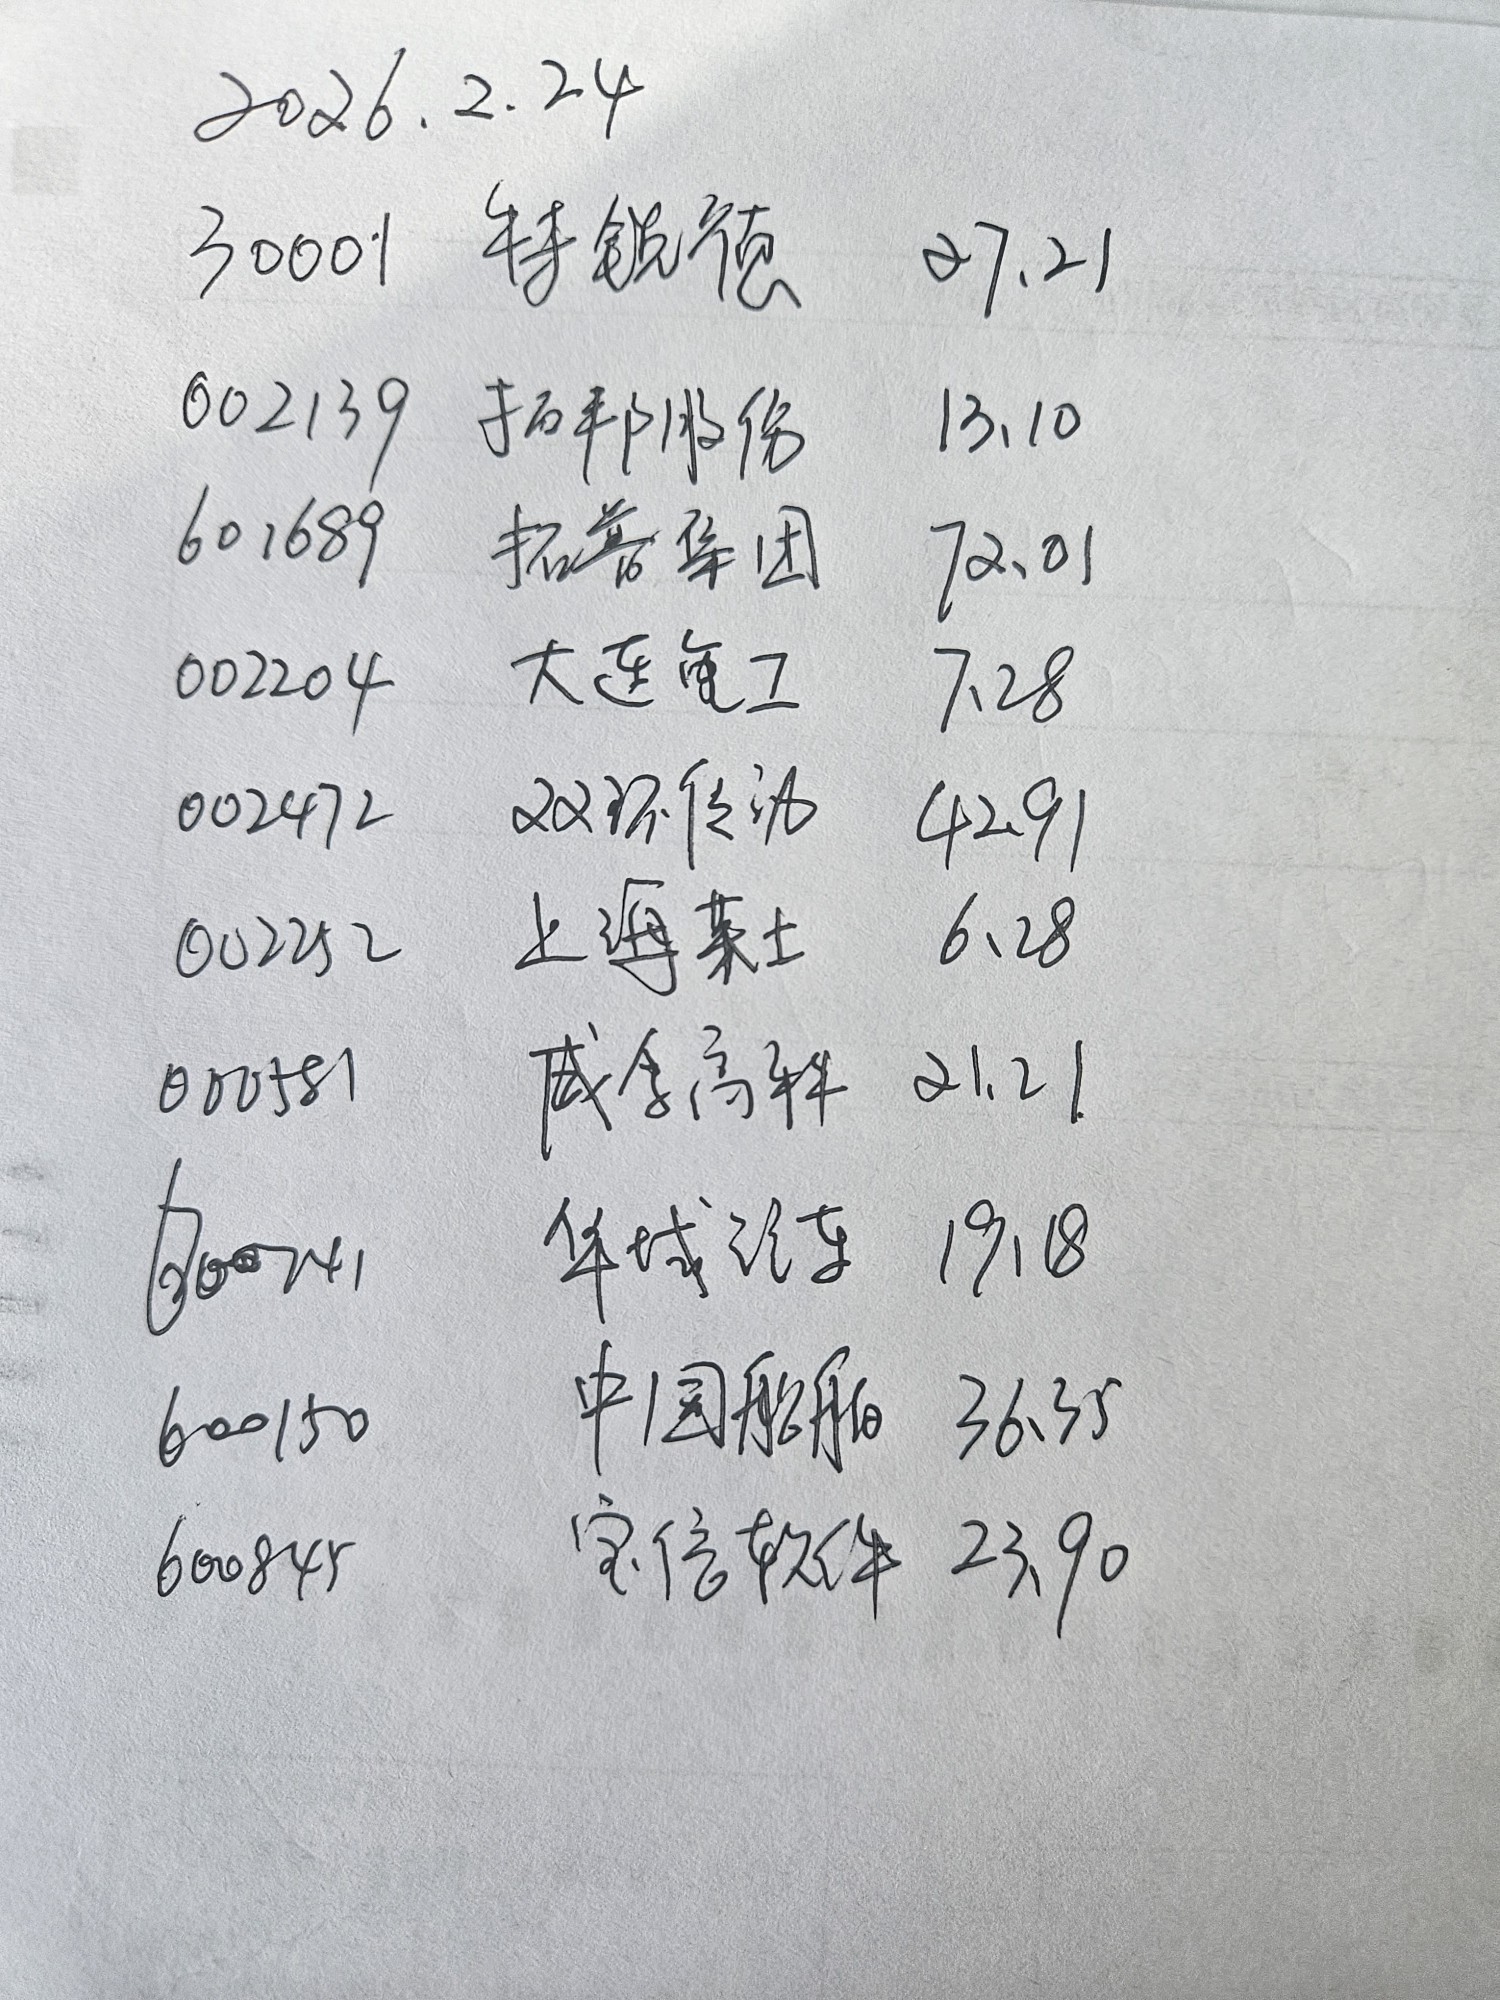 2026.2.24
30001 特锐德 27.21
002139 拓邦股份 13.10
601689 拓普集团 72.01
002204 大连电工 7.28
002472 双环传动 42.91
002252 上海莱士 6.28
000581 威孚高科 21.21
600741 华域汽车 19.18
600150 中国船舶 36.35
600845 宝信软件 23.90